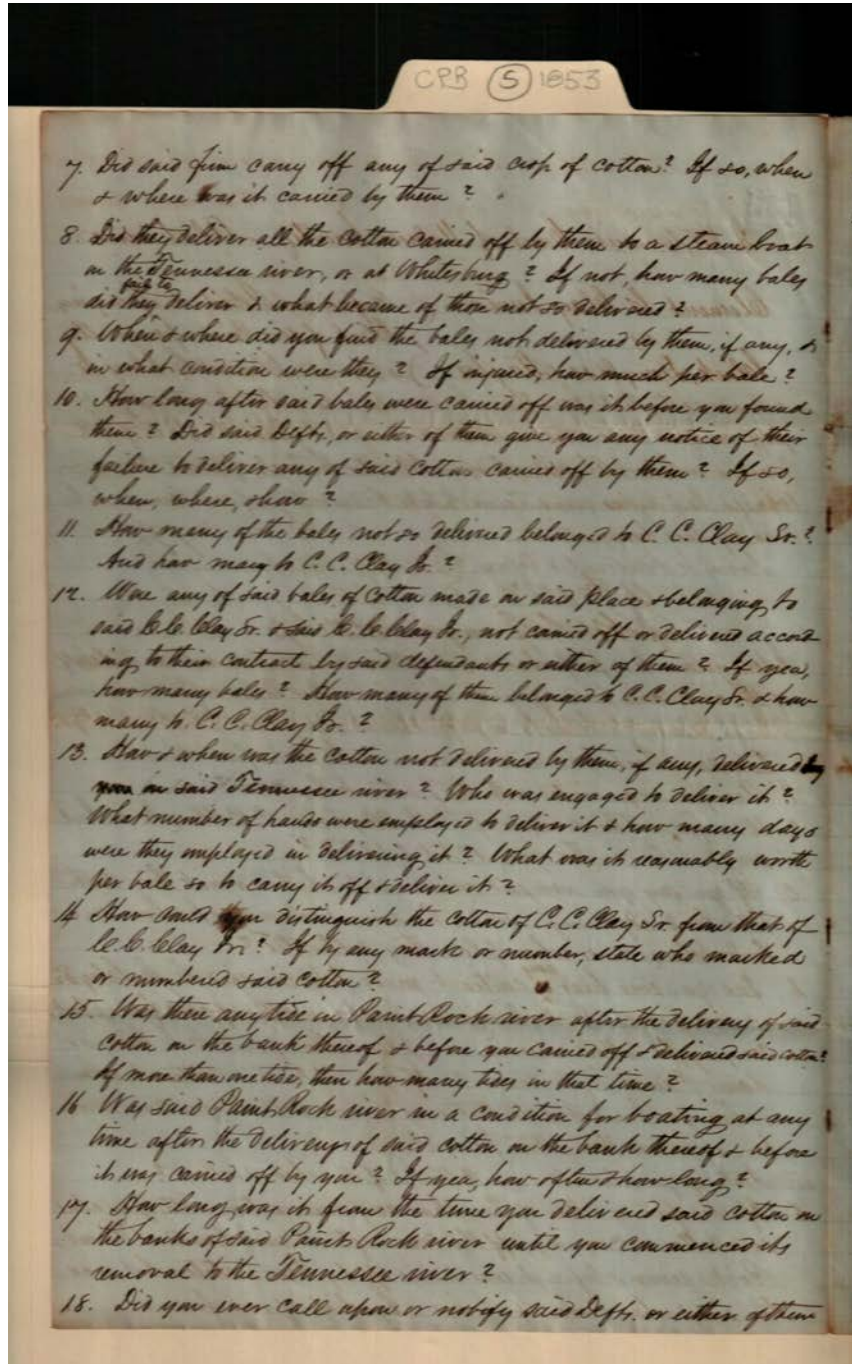 CPB (S) 1853
7. Did said firm carry off any of said crop of cotton? If so, when
& where was it carried by them?
8. Did they deliver all the cotton carried off by them to a steam boat
on the Tennessee river, or at Whitesburg? If not, how many bales
did they fail to deliver & what became of those not so delivered?
9. When & where did you find the bales not delivered by them, if any, &
in what condition were they? If injured, how much per bale?
10. How long after said bales were carried off was it before you found
them? Did said Defts, or either of them give you any notice of their
failure to deliver any of said cotton carried off by them? If so,
when, where, & how?
11. How many of the bales not so delivered belonged to C. C. Clay Sr.?
And how many to C. C. Clay Jr.?
12. Were any of said bales of Cotton made on said place & belonging to
said C. C. Clay Sr. & said C. C. Clay Jr., not carried off or delivered accord
ing to their contract by said defendants or either of them? If yea,
how many bales? How many of them belonged to C. C. Clay Sr. & how
many to C. C. Clay Jr.?
13. How & when was the cotton not delivered by them, if any, delivered
in said Tennessee river? Who was engaged to deliver it?
What number of hands were employed to deliver it & how many days
were they employed in delivering it? What was it reasonably worth
per bale so to carry it off & deliver it?
14 How could you distinguish the cotton of C. C. Clay Sr. from that of
C. C. Clay Jr.? If by any mark or number, state who marked
or numbered said cotton?
15. Was there any tide in Paint Rock river after the delivery of said
cotton on the bank thereof & before you carried off & delivered said cotton?
If more than one tide, then how many tides in that time?
16 Was said Paint Rock river in a condition for boating at any
time after the delivery of said cotton on the bank thereof & before
it was carried off by you? If yea, how often & how long?
17. How long was it from the time you delivered said cotton on
the banks of said Paint Rock river until you commenced its
removal to the Tennessee river?
18. Did you ever call upon or notify said Defts. or either of them